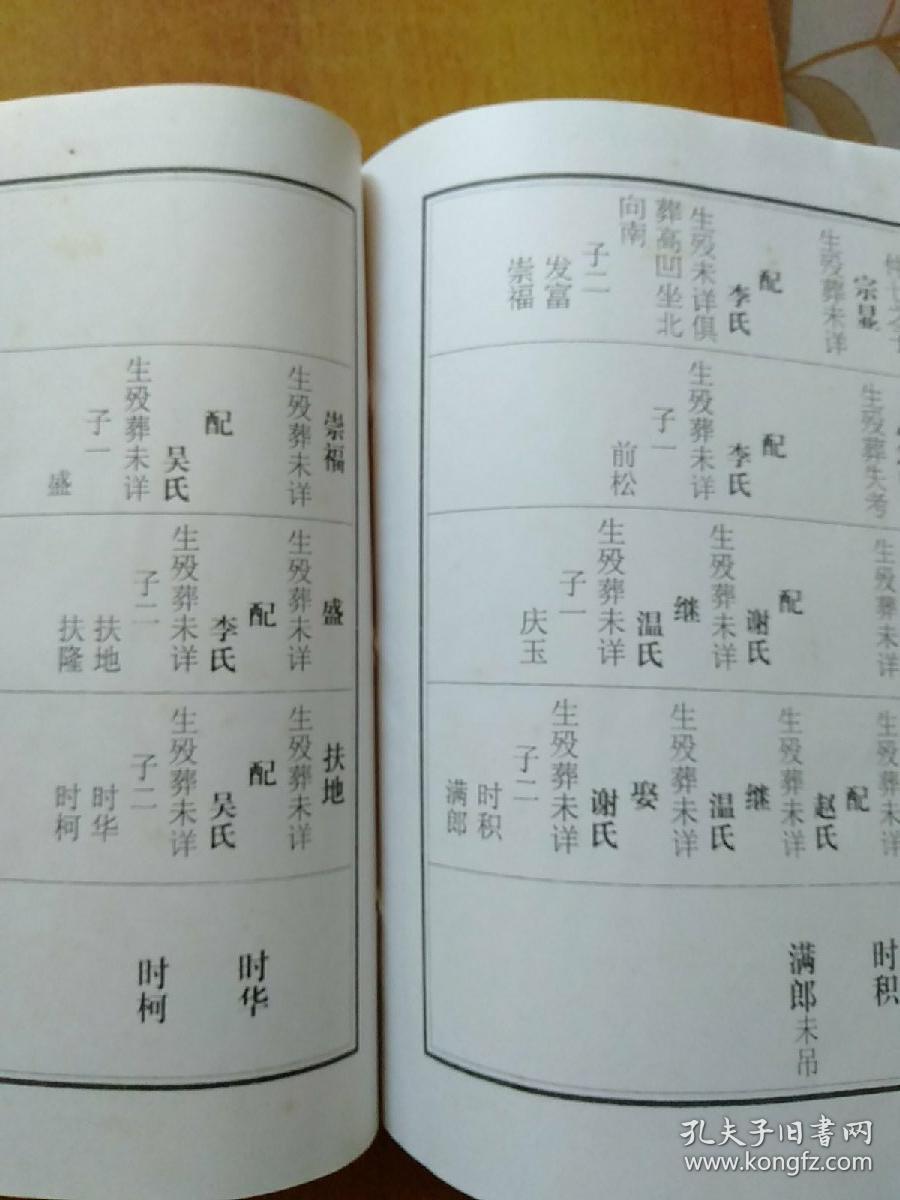 宗显
生殁葬未详
配
李氏
生殁未详俱
葬高凹坐北
向南
子二
发富
崇福
生殁葬失考
配
李氏
生殁葬未详
子一
前松
生殁葬未详
配
谢氏
生殁葬未详
继
温氏
生殁葬未详
子一
庆玉
生殁葬未详
配
赵氏
生殁葬未详
继
温氏
生殁葬未详
娶
谢氏
生殁葬未详
子二
时积
满郎
时积
满郎未吊
崇福
生殁葬未详
配
吴氏
生殁葬未详
子一
盛
盛
生殁葬未详
配
李氏
生殁葬未详
子二
扶地
扶隆
扶地
生殁葬未详
配
吴氏
生殁葬未详
子二
时华
时柯
时华
时柯
孔夫子旧书网
www.kongfz.com